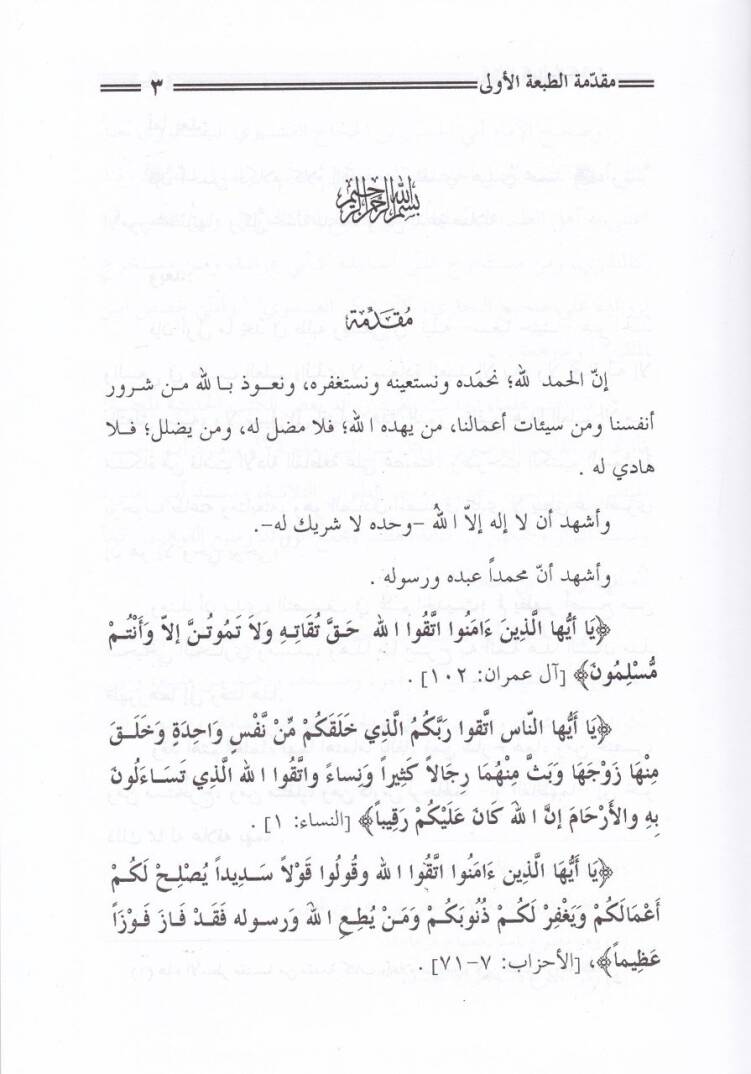 مقدّمة الطبعة الأولى ٣
بسم الله الرحمن الرحيم
مُقَدِّمَة
إنّ الحمد لله؛ نحمَده ونستعينه ونستغفره، ونعوذ بالله من شرور
أنفسنا ومن سيئات أعمالنا، من يهده الله؛ فلا مضل له، ومن يضلل؛ فلا
هادي له .
وأشهد أن لا إله إلاّ اللهُ –وحده لا شريك له–.
وأشهد أنّ محمداً عبده ورسوله .
﴿يَا أَيُّها الَّذِينَ ءَامَنُوا اتَّقُوا الله حَقَّ تُقَاتِهِ وَلاَ تَمُوتُنَّ إلاّ وَأَنْتُمْ
مُّسْلِمُونَ﴾ [آل عمران: ١٠٢] .
﴿يَا أَيُّها النّاس اتَّقوا رَبَّكُمُ الَّذي خَلَقَكُمْ مِّنْ نَّفْسٍ وَاحِدَةٍ وَخَلَقَ
مِنْهَا زَوْجَهَا وَبَثَّ مِنْهُمَا رِجَالاً كَثِيراً وَنساءً واتَّقُوا الله الَّذي تَسَاءَلُونَ
بِهِ والأَرْحَامَ إنَّ اللهَ كَانَ عَلَيْكُمْ رَقِيباً﴾ [النساء: ١] .
﴿يَا أَيُّهَا الَّذِين ءَامَنُوا اتَّقُوا الله وقُولُوا قَوْلاً سَدِيداً يُصْلِحْ لَكُمْ
أَعْمَالَكُمْ وَيَغْفِرْ لَكُمْ ذُنُوبَكُمْ وَمَنْ يُطِعِ اللهَ وَرسوله فَقَدْ فَازَ فَوْزَاً
عَظِيماً﴾، [الأحزاب: ٧–٧١] .